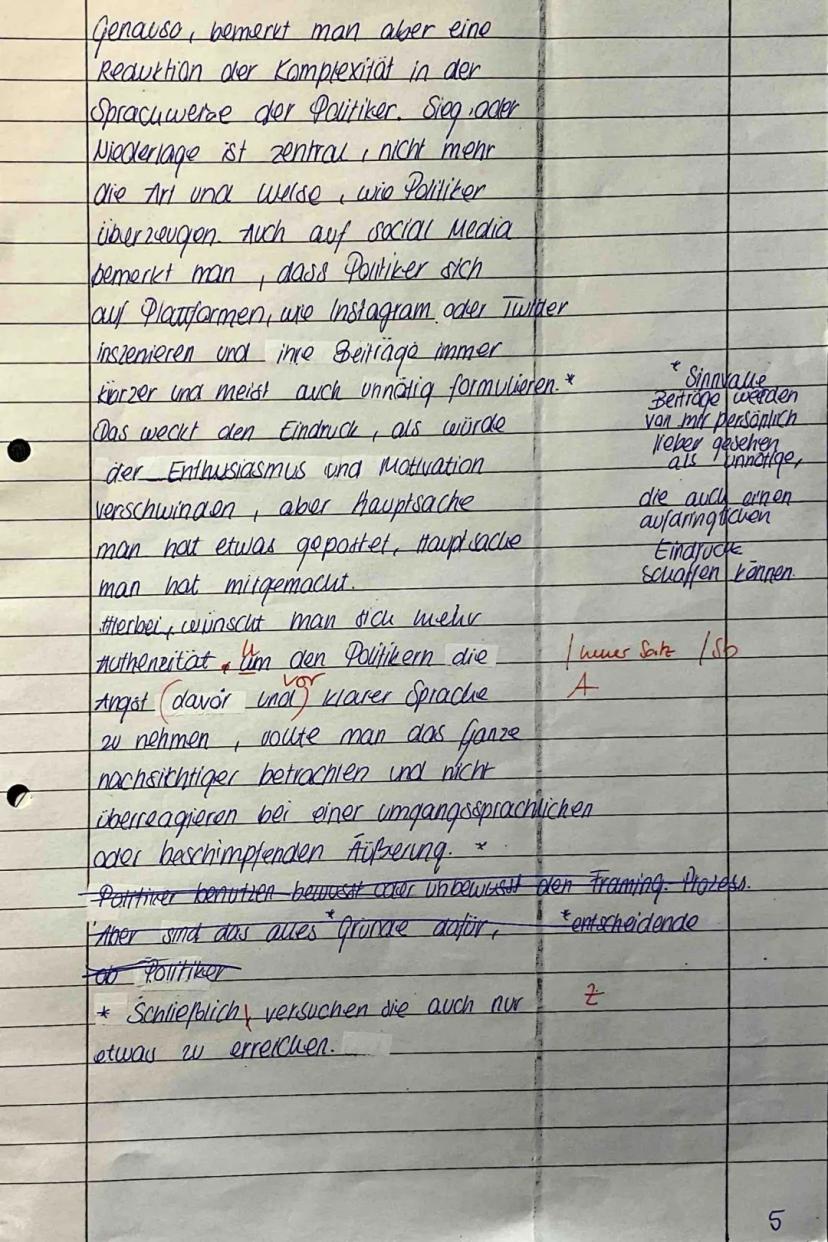 Genauso, bemerkt man aber eine
Reduktion der Komplexität in der
Sprachweise der Politiker. Sieg oder
Niederlage ist zentral, nicht mehr
die Art und Weise, wie Politiker
überzeugen. Auch auf social Media
bemerkt man, dass Politiker sich
auf Plattformen, wie Instagram oder Twitter
inszenieren und ihre Beiträge immer
kürzer und meist auch unnötig formulieren. *
* Sinnvolle
Beiträge werden
von mir persönlich
lieber gesehen
als unnötige,
die auch einen
aufdringlichen
Eindruck
schaffen können.
Das weckt den Eindruck, als würde
der Enthusiasmus und Motivation
verschwinden, aber Hauptsache
man hat etwas gepostet, Hauptsache
man hat mitgemacht.
Hierbei, wünscht man sich mehr
Authenzität. Um den Politikern die
/ neuer Satz / Sb
Angst (davor und) vor klarer Sprache
A
zu nehmen, sollte man das Ganze
nachsichtiger betrachten und nicht
überreagieren bei einer umgangssprachlichen
oder beschimpfenden Äußerung. *
Politiker benutzen bewusst oder unbewusst den Framing-Prozess.
Aber sind das alles * Gründe dafür, * entscheidende
ob Politiker
* Schließlich versuchen die auch nur
Z
etwas zu erreichen.
5